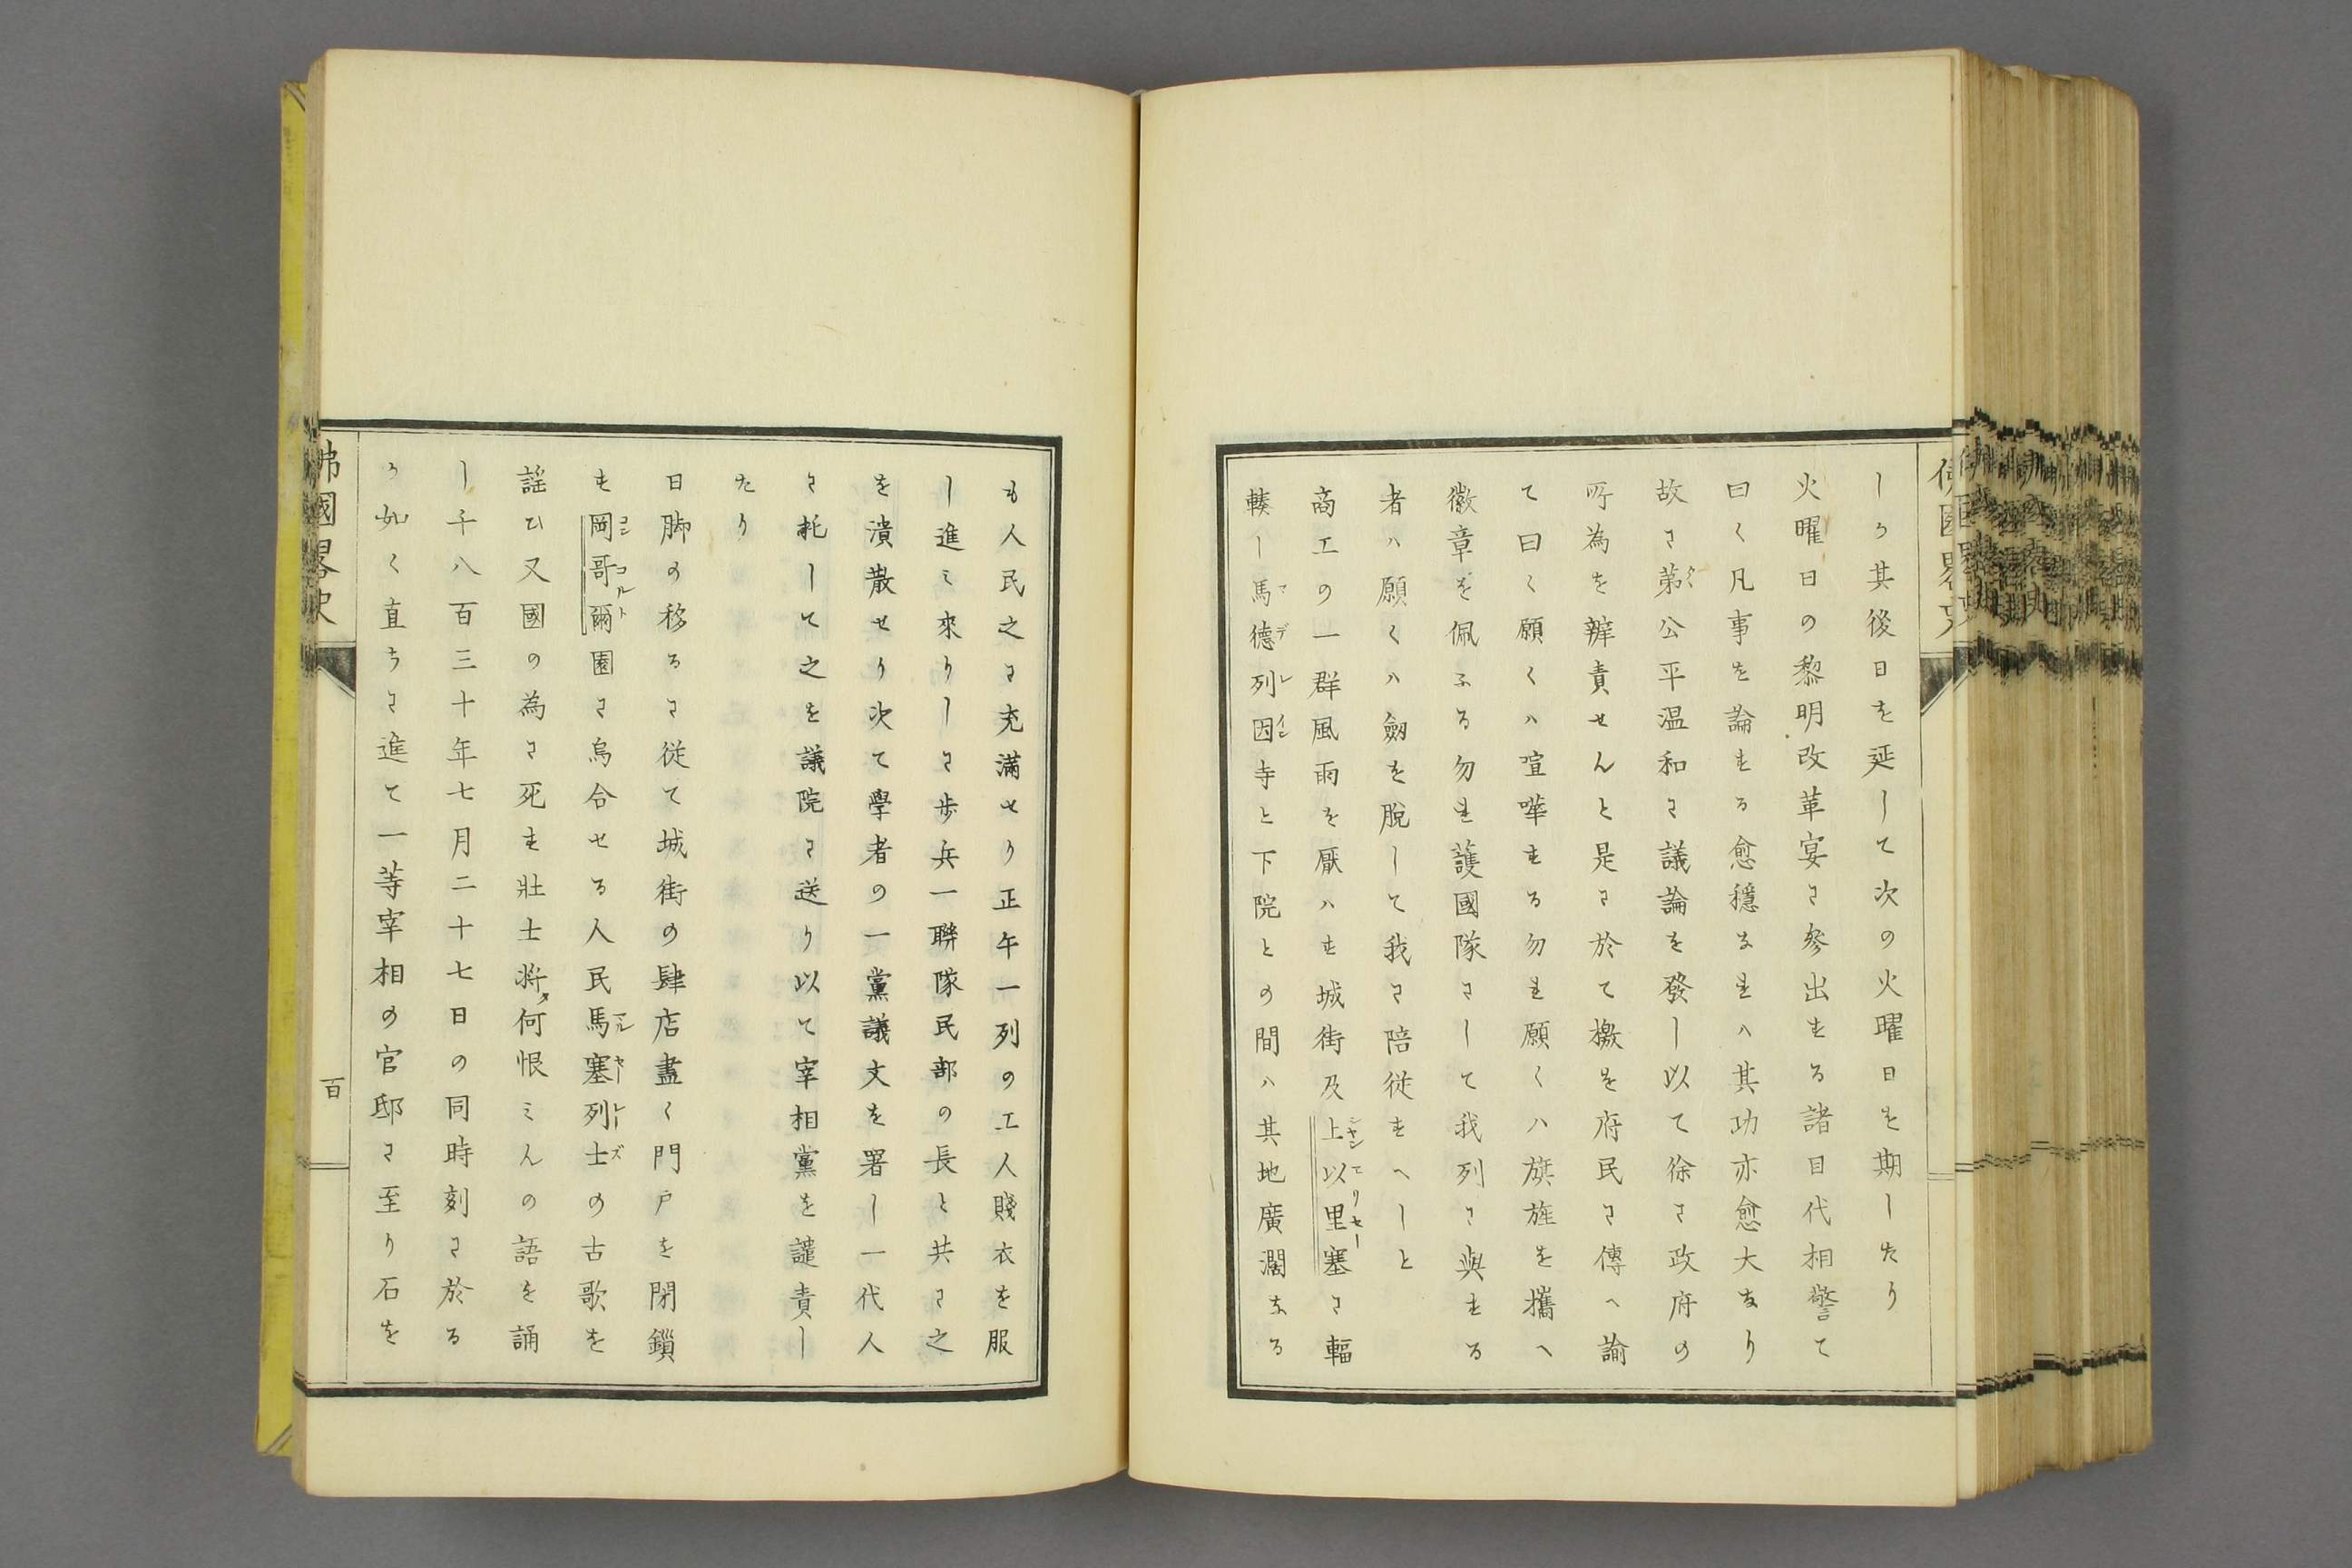 しか其後日を延して次の火曜日を期したり
火曜日の黎明改革宴に參出する諸目代相警て
曰く凡事を論する愈穏なれハ其功亦愈大なり
故に第公平温和に議論を發し以て徐に政府の
所為を辨責せんと是に於て檄を府民に傳へ諭
て曰く願くハ喧嘩する勿れ願くハ旗旌を攜へ
徽章を佩ふる勿れ護國隊にして我列に與する
者ハ願くハ劔を脱して我に陪従すへしと
商工の一群風雨を厭ハす城街及上以里塞に輻
シャンエリセー
輳し馬德列因寺と下院との間ハ其地廣濶なる
マデレイン
も人民之に充満せり正午一列の工人賤衣を服
し進み來りしに歩兵一聯隊民部の長と共に之
を潰散せり次て學者の一黨議文を署し一代人
に託して之を議院に送り以て宰相黨を譴責し
たり
日脚の移るに従て城街の肆店盡く門戸を閉鎖
す岡哥爾園に烏合せる人民馬塞列士の古歌を
コンコルト
マルセーレーズ
謡ひ又國の為に死す壯士將何恨みんの語を誦
し千八百三十年七月二十七日の同時刻に於る
か如く直ちに進て一等宰相の官邸に至り石を
佛國畧史
百